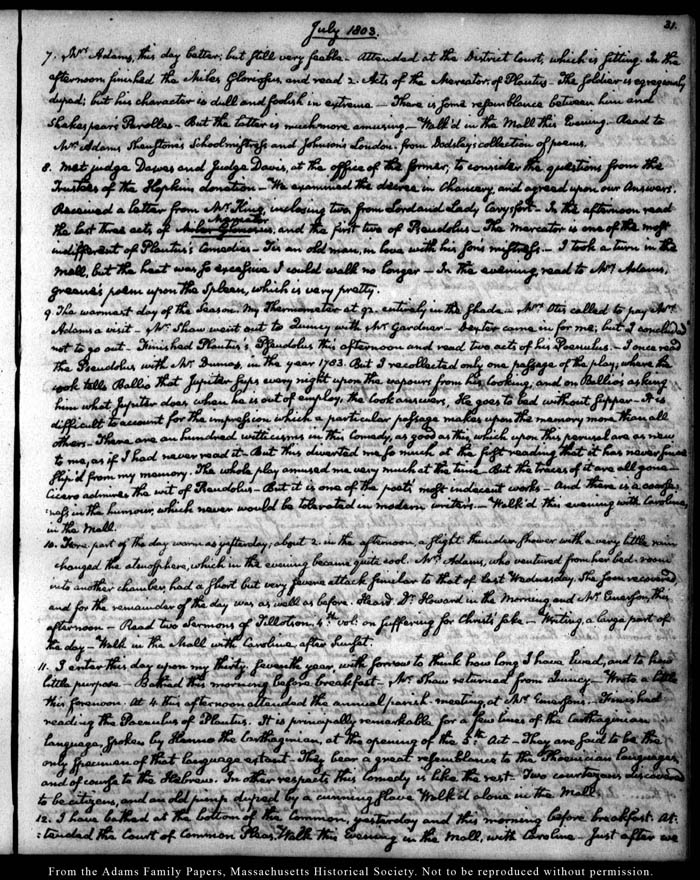 July 1803.
31.
7. Mrs Adams, this day better; but still very feeble. Attended at the District Court, which is sitting. In the
afternoon, finished the Miles Gloriosus, and read 2. Acts of the Mercator of Plautus. The soldier is egregiously
duped; but his character is dull and foolish in extreme — There is some resemblance between him and
Shakespear's Parolles. But the latter is much more amusing — Walk'd in the Mall this Evening. Read to
Mrs Adams Shenstone's Schoolmistress and Johnson's London: from Dodsley's collection of poems.
8. Met judge Dawes and Judge Davis, at the office of the former, to consider the questions from the
Trustees of the Hopkins donation — We examined the decree in Chancery, and agreed upon our Answers.
Received a letter from Mr King, inclosing two, from Lord and Lady Carysfort — In the afternoon read
Mercator
the last three acts of Miles Gloriosus, and the first two of Pseudolus — The Mercator is one of the most
indifferent of Plautus's Comedies — Tis an old man, in love with his son's mistress — I took a turn in the
Mall, but the heat was so excessive I could walk no longer — In the evening, read to Mrs Adams,
Greene's poem upon the Spleen, which is very pretty.
9. The warmest day of the Season. My Thermometer at 92. entirely in the shade — Mrs Otis called to pay Mrs
Adams a visit — Mr Shaw went out to Quincy with Mr Gardner — Dexter came in for me; but I concluded
not to go out — Finished Plautus's Pseudolus this afternoon and read two acts of his Poenulus — I once read
the Pseudolus with Mr Dumas, in the year 1783. But I recollected only one passage of the play; where the
cook tells Ballio that Jupiter sups every night upon the vapours from his cooking, and on Ballio's asking
him what Jupiter does, when he is out of employ, the Cook answers, He goes to bed without supper — It is
difficult to account for the impression which a particular passage makes upon the memory more than all
others — There are an hundred witticisms in this Comedy, as good as this, which upon this perusal are as new
to me, as if I had never read it — But this diverted me so much at the first reading that it has never since
slip'd from my memory. The whole play amused me very much at the time — But the traces of it are all gone —
Cicero admires the wit of Pseudolus — But it is one of the poet's most indecent works — And there is a coarse-
ness in the humour, which never would be tolerated in modern writers — Walk'd this evening with Caroline,
in the Mall.
10. Fore part of the day warm as yesterday; about 2. in the afternoon, a slight thunder shower with a very little rain
changed the atmosphere, which in the evening became quite cool. Mrs Adams, who ventured from her bed-room
into another chamber, had a short but very severe attack similar to that of last Wednesday. She soon recovered,
and for the remainder of the day was as well as before. Heard Dr Howard in the Morning and Mr Emerson, this
afternoon — Read two Sermons of Tillotson, 4th vol: on suffering for Christ's sake — Writing, a large part of
the day — Walk in the Mall with Caroline, after Sunset.
11. I enter this day upon my thirty seventh year, with sorrow to think how long I have lived, and to how
little purpose — Bathed this morning before breakfast — Mr Shaw returned from Quincy — Wrote a little
this forenoon. At 4 this afternoon attended the annual parish-meeting, at Mr Emerson's. Finished
reading the Poenulus of Plautus. It is principally remarkable for a few lines of the Carthaginian
language, spoken by Hanno the Carthaginian, at the opening of the 5th Act — They are said to be the
only specimen of that language extant — They bear a great resemblance to the Phoenician language,
and of course to the Hebrew. In other respects this comedy is like the rest. Two courtezans discovered
to be citizens, and an old pimp duped by a cunning slave. Walk'd alone in the Mall.
12. I have bathed at the bottom of the Common, yesterday and this morning before breakfast. At-
:tended the Court of Common Pleas. Walk this Evening in the Mall, with Caroline — Just after we
From the Adams Family Papers, Massachusetts Historical Society. Not to be reproduced without permission.